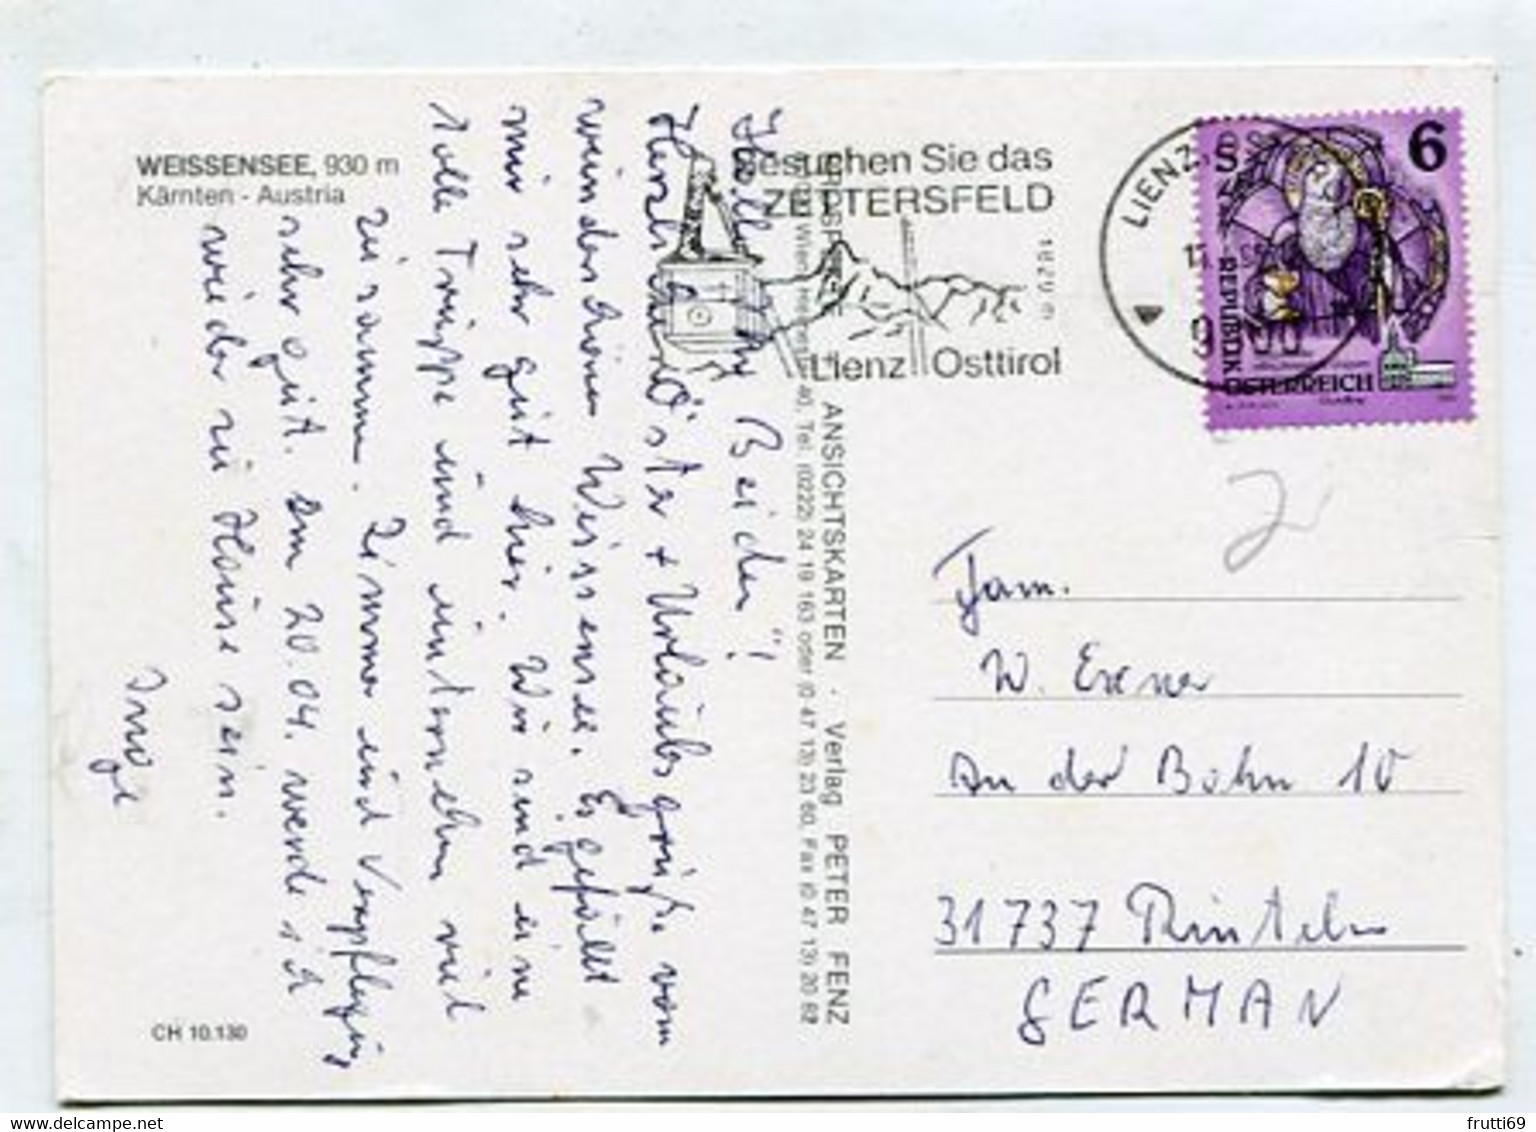 WEISSENSEE, 930 m
Kärnten - Austria
Hallo Ihr Beiden!
Herzliche Oster + Urlaubsgrüße vom
wunderschönen Weissensee. Es gefällt
mir sehr gut hier. Wir sind eine
tolle Truppe und unternehmen viel
zusammen. Zimmer und Verpflegung
sehr gut. Am 20.04. werde ich
wieder zu Hause sein.
Inge
CH 10.130
Besuchen Sie das
ZETTERSFELD
1820 m
Lienz Osttirol
ANSICHTSKARTEN · Verlag PETER FENZ
Wien, 40, Tel. (0222) 24 19 163 oder (0 47 13) 23 60, Fax (0 47 13) 20 82
LIENZ
9
6
S
REPUBLIK
ÖSTERREICH
Fam.
W. Exner
An der Bahn 10
31737 Rinteln
GERMAN
delcampe.net
frutti69